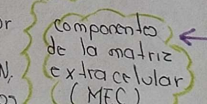 componento
de la matriz
extracelular
(MEC)